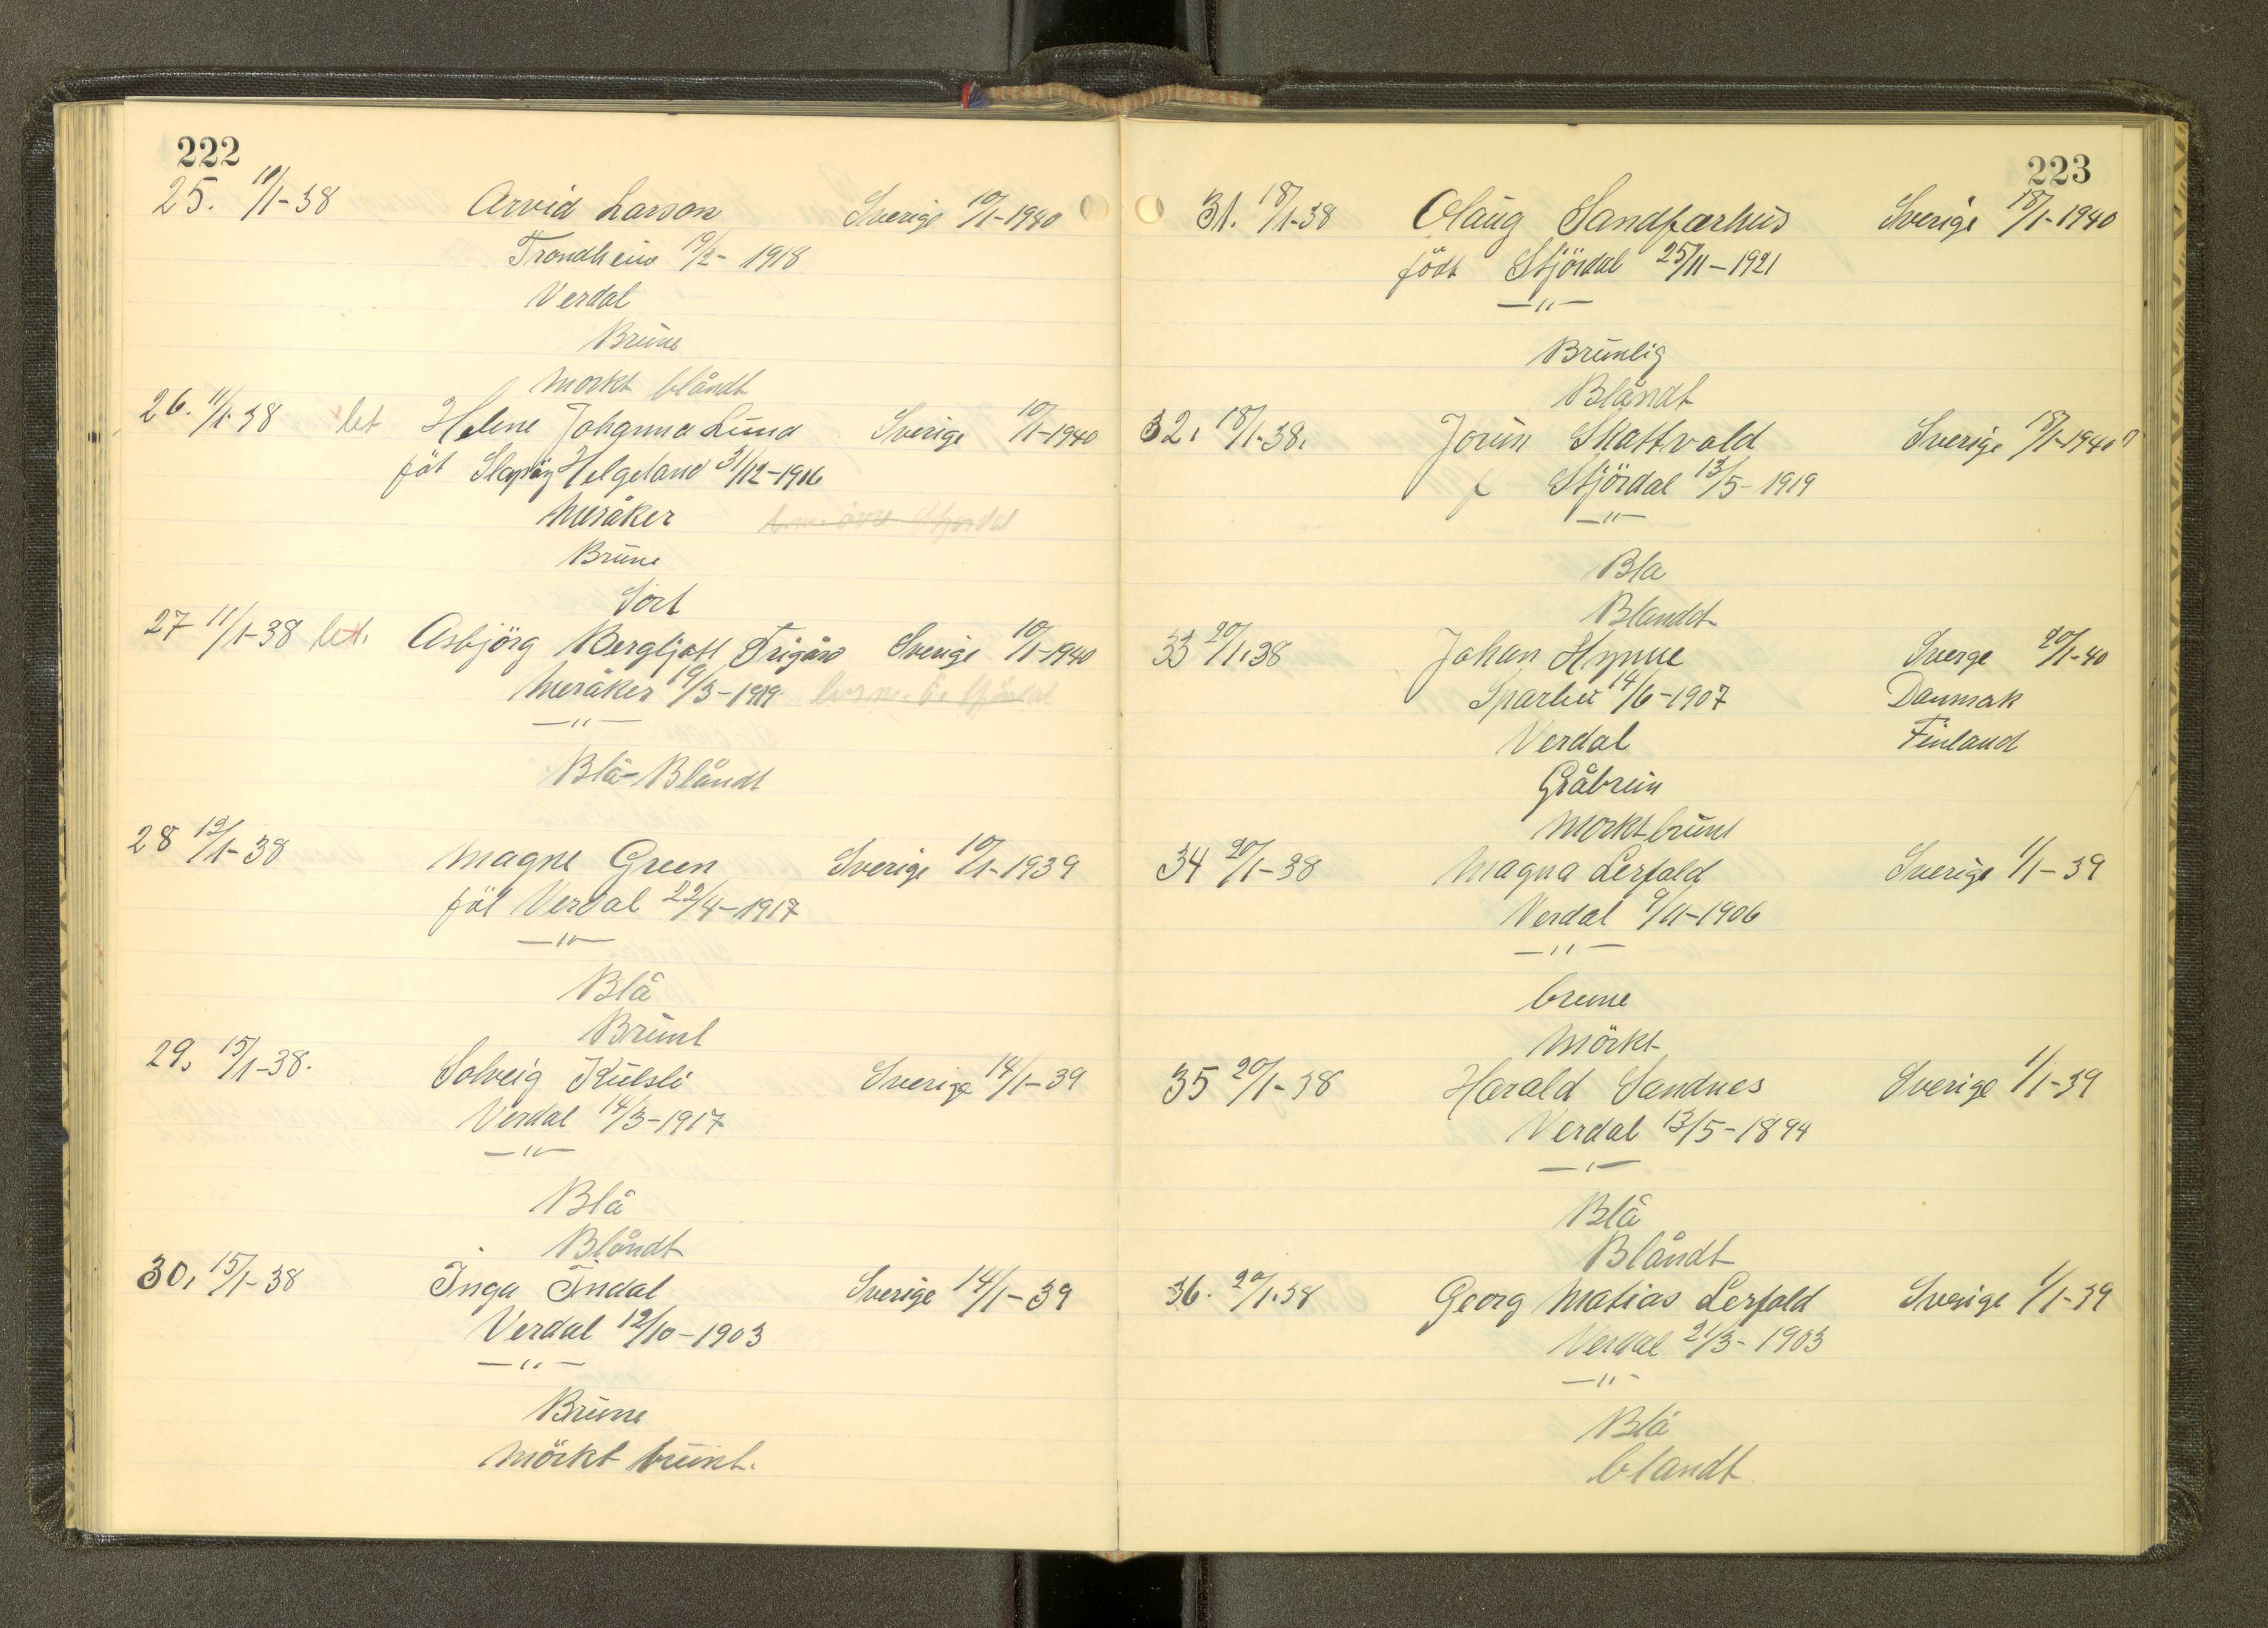 222
25. 11/1-38 Arvid Larson Sverige 10/1-1940
Trondheim 19/2- 1918
Verdal
Brune
Morkt blåndt
26. 11/1-38 let Helene Johanna Lund Sverige 10/1-1940
föt Helgeland 31/12-1916
Meråker
Brune
Sort
27 11/1-38 let. Asbjörg Bergljott Trigård Sverige 10/1-1940
Meråker 19/3-1919
—"—
Blå-Blåndt
28 12/1-38 Magne Green Sverige 10/1-1939
föt Verdal 22/4-1917
—"—
Blå
Brunt
29. 15/1-38. Solveig Kulsli Sverige 14/1-39
Verdal 14/3-1917
—"—
Blå
Blåndt
30. 15/1-38 Inga Indal Sverige 14/1-39
Verdal 12/10-1903
—"—
Brune
Mörkt brunt.
223
31. 18/1-38 Olaug Sandfærhus Sverige 18/1-1940
född Stjördal 25/11-1921
—"—
Brunlig
Blåndt
32. 18/1-38. Jorun Skattvold Sverige 18/1-1940
f Stjördal 13/5-1919
—"—
Bla
Blandt
33 20/1-38 Johan Hynne Sverge 20/1-40
Sparbu 14/6-1907 Danmak
Verdal Finland
Gråbrun
Morkt brunt
34 20/1-38 Magna Lerfald Sverige 1/1-39
Verdal 9/11-1906
—"—
brune
Mörkt
35 20/1-38 Harald Sandnes Sverige 1/1-39
Verdal 13/5-1894
—"—
Blå
Blåndt
36. 20/1-38 Georg Matias Lerfald Sverige 1/1-39
Verdal 21/3-1903
—"—
Blå
blandt